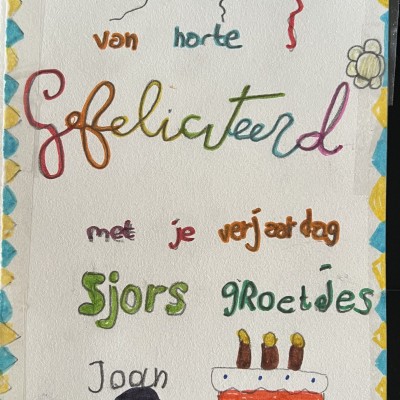 van harte
Gefeliciteerd
met je verjaardag
Sjors gRoetjes
Joan